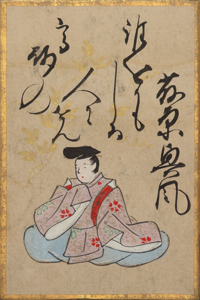 藤原興風
誰をかも
しる
人にせん
高砂の